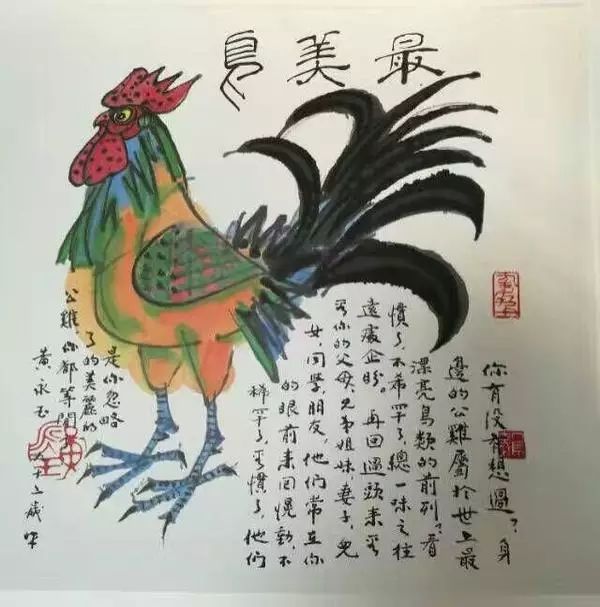 最美鳥
你有没有想過？身
邊的公雞屬於世上最
漂亮鳥類的前列？看
慣了，不希罕了，總一味之往
遠處企盼。再回過頭来看
看你的父母、兄弟姐妹、妻子、兒
女同學、朋友，他們常在你
的眼前来回幌動，不
稀罕了，看慣了，他們
是你忽略
了的美麗的
公雞，你都等閒
黄永玉